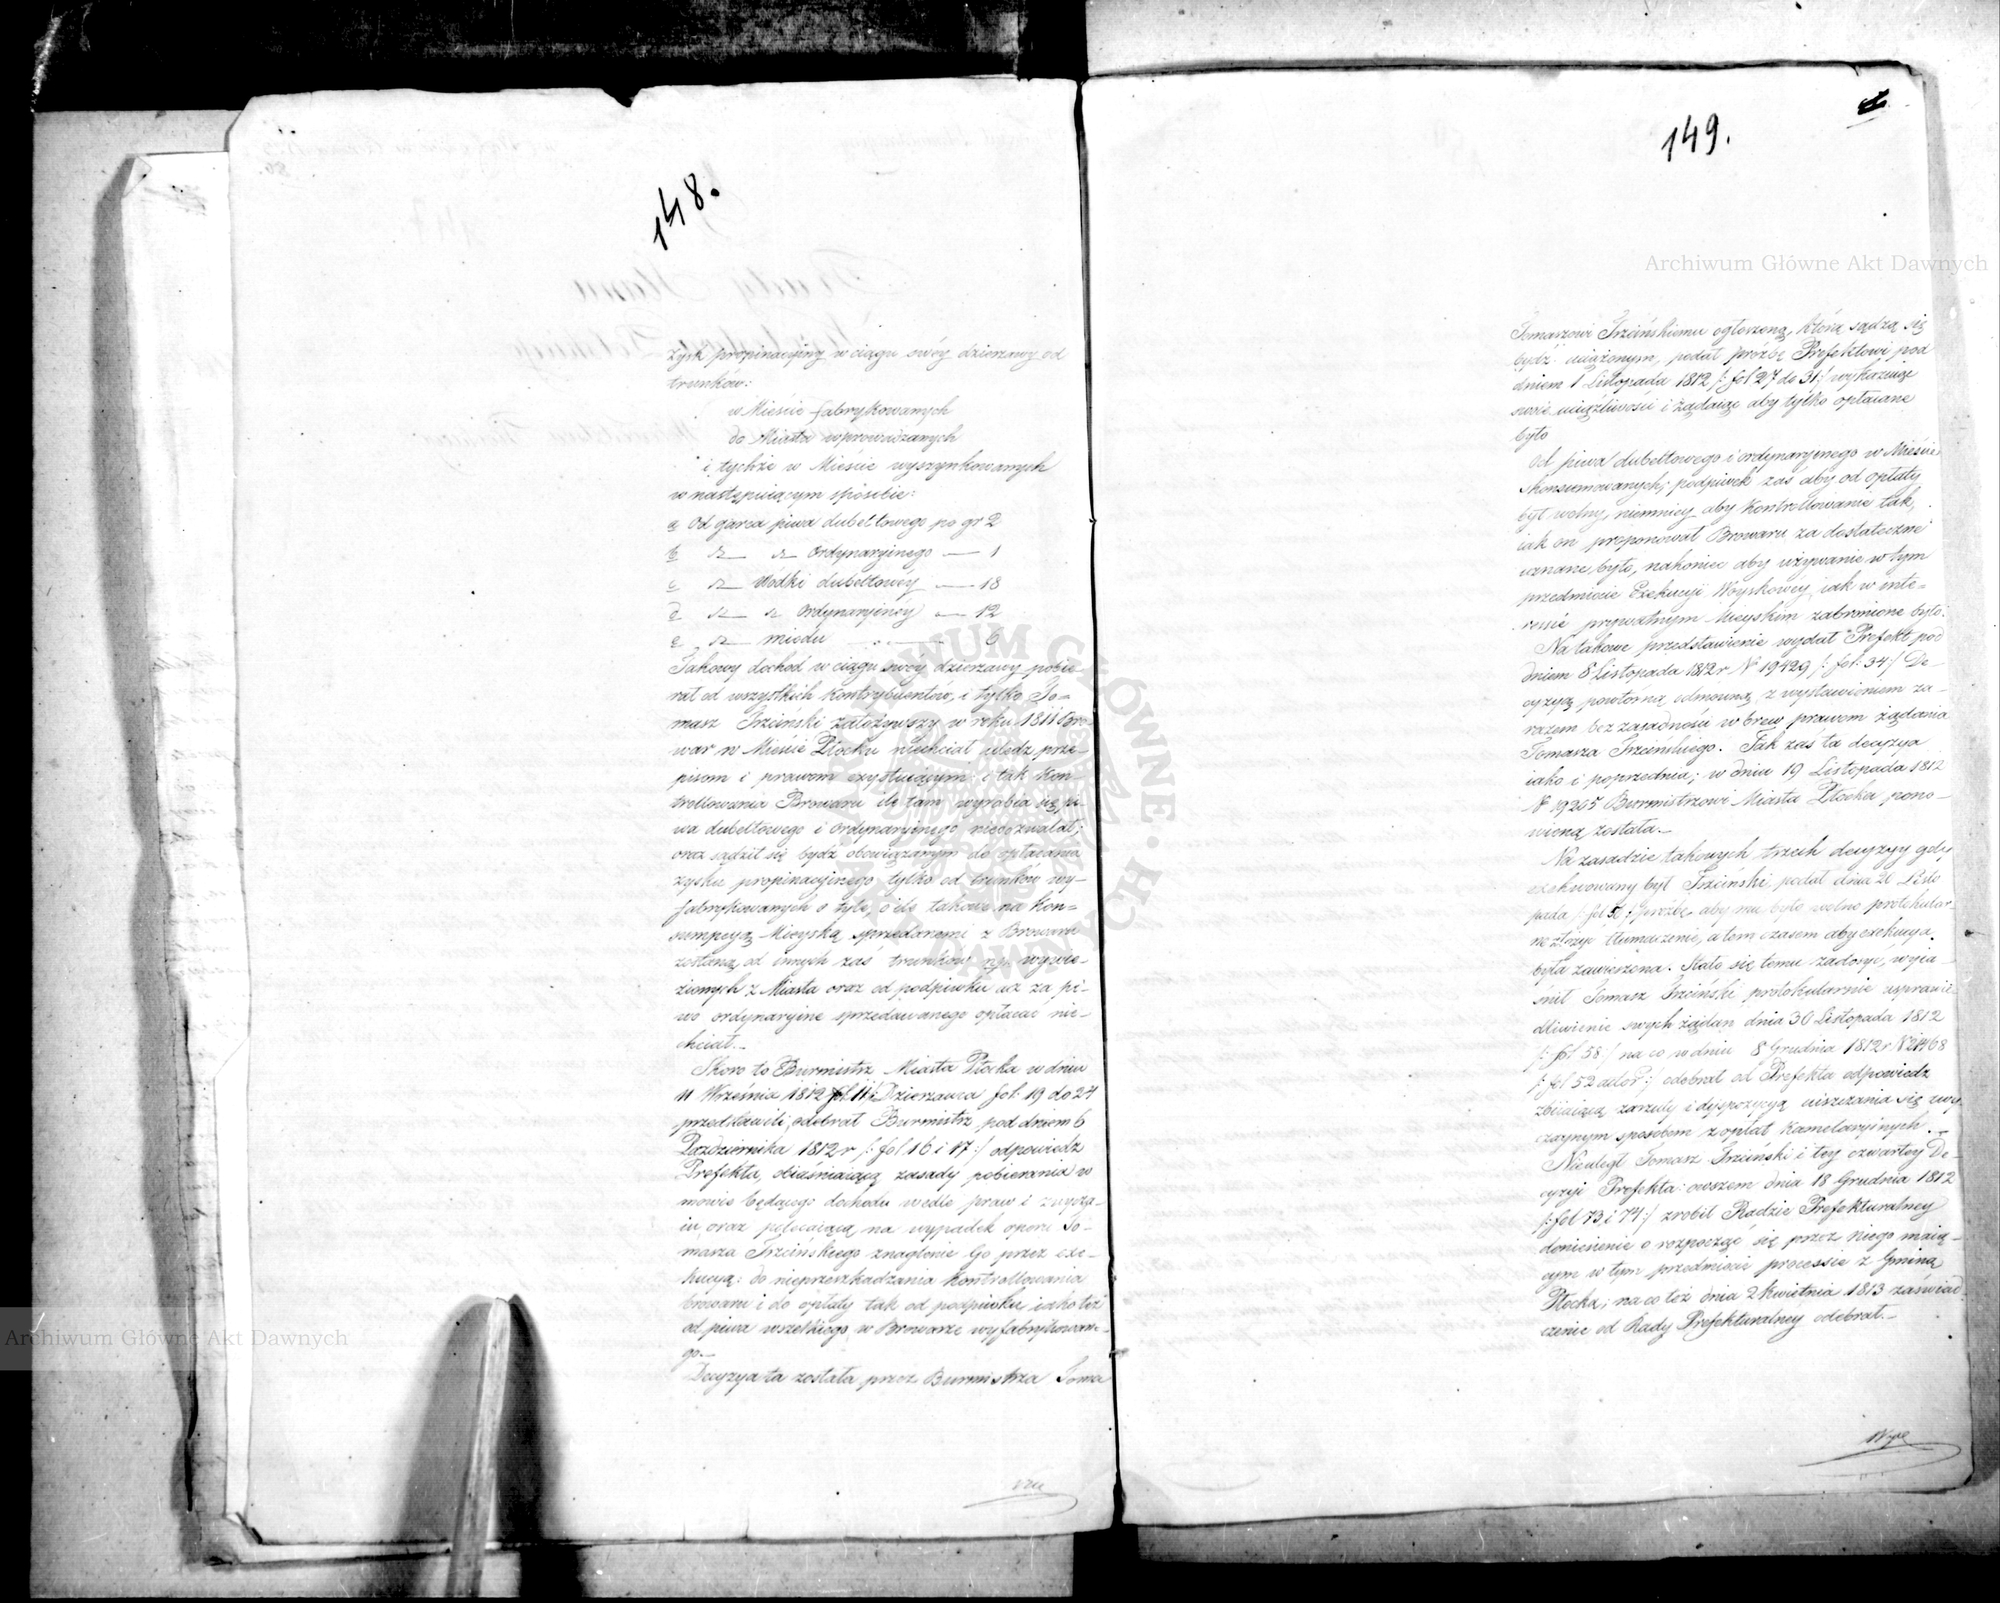 148.
zysk propinacyiny w ciągu swéy dzierzawy od
trunków:
w Mieście fabrykowanych
do Miasta wprowadzanych
i tychże w Mieście wyszynkowanych
w następuiącym sposobie:
a od garca piwa dubeltowego po gr 2
b ordynaryinego — 1
c Wódki dubeltowéy — 18
d ordynaryinéy — 12
e miodu — 6
Takowy dochód w ciągu swey dzierzawy pobie-
rał od wszystkich kontrybuentów, i tylko To=
masz Trzciński założywszy w roku 1811 Bro-
war w Mieście Płocku niechciał uledz prze-
pisom i prawom exystuiącym: i tak kon-
trollowania Browaru ile tam wyrabia się pi-
wa dubeltowego i ordynaryinego niedozwalał;
oraz sądził się bydź obowiązanym do opłacania
zysku propinacyinego tylko od trunków wy-
fabrykowanych o tyle, o ile takowe na kon=
sumpcyą Mieyską sprzedanemi z Browaru
zostaną, od innych zaś trunków wywie-
zionych z Miasta oraz od podpiwku acz za pi-
wo ordynaryine sprzedawanego opłacać nie-
chciał.—
Skoro to Burmistrz Miasta Płocka w dniu
11 Września 1812 fol. 11 Dzierzawca fol: 19 do 24
przedstawili, odebrał Burmistrz pod dniem 6
Października 1812 r /: fol 16 i 17 :/ odpowiedz
Prefekta, obiaśniaiącą zasady pobierania w
mowie będącego dochodu wedle praw i zwycza-
iu, oraz polecaiącą na wypadek oporu To-
masza Trzcińskiego znaglenie Go przez exe-
kucyą: do nieprzeszkadzania kontrollowania
browaru i do opłaty tak od podpiwku iako też
od piwa wszelkiego, w Browarze wyfabrykowane-
go.—
Decyzya ta została przez Burmistrza Toma
149.
Tomaszowi Trzcińskiemu ogłoszoną, którą sądząc się
bydź uciążonym, podał prośbę Prefektowi pod
dniem 1 Listopada 1812 /: fol 27 do 31 :/ wykazuiąc
swoie uciążliwości i żądaiąc aby tylko opłacane
było
od piwa dubeltowego i ordynaryinego w Mieście
skonsumowanych; podpiwek zaś aby od opłaty
był wolny, niemniey aby kontrollowanie tak,
iak on proponował Browaru za dostateczne
uznane było, nakoniec aby używanie w tym
przedmiocie Exekucyi Woyskowéy, iak w inte=
ressie prywatnym Mieyskim zabronione było.
Na takowe przedstawienie wydał Prefekt pod
dniem 8 Listopada 1812 r N 19429 /: fol: 34 :/ De-
cyzyą powtórną odmowną z wystawieniem za-
razem bezzasadności wbrew prawom żądania
Tomasza Trzcińskiego. Tak zaś ta decyzya
iako i poprzednia; w dniu 19 Listopada 1812
N 19265 Burmistrzowi Miasta Płocka pono-
wioną została.—
Na zasadzie takowych trzech decyzyy gdy
exekwowany był Trzciński, podał dnia 26 Listo
pada prośbę, aby mu było wolno protokular-
nie złożyć tłumaczenie, a tem czasem aby exekucya
była zawieszona. Stało się temu zadosyć, wyia-
śnił Tomasz Trzciński protokularnie usprawie-
dliwienie swych żądań dnia 30 Listopada 1812
/: fol 58 / na co w dniu 8 Grudnia 1812 r
odebrał od Prefekta odpowiedz
zbiiaiącą zarzuty i dyspozycyą uiszczania się zwy
czaynym sposobem z opłat kamelaryinych.—
Nieuległ Tomasz Trzciński i tey czwartey De-
cyzyi Prefekta: owszem dnia 18 Grudnia 1812
/: fol 73 i 74 :/ zrobił Radzie Prefekturalney
doniesienie o rozpocząć się przez niego maią-
cym w tym przedmiocie processie z Gminą
Płocką; na co też dnia 2 Kwietnia 1813 zaświad-
czenie od Rady Prefekturalney odebrał.—
Archiwum Główne Akt Dawnych
Archiwum Główne Akt Dawnych